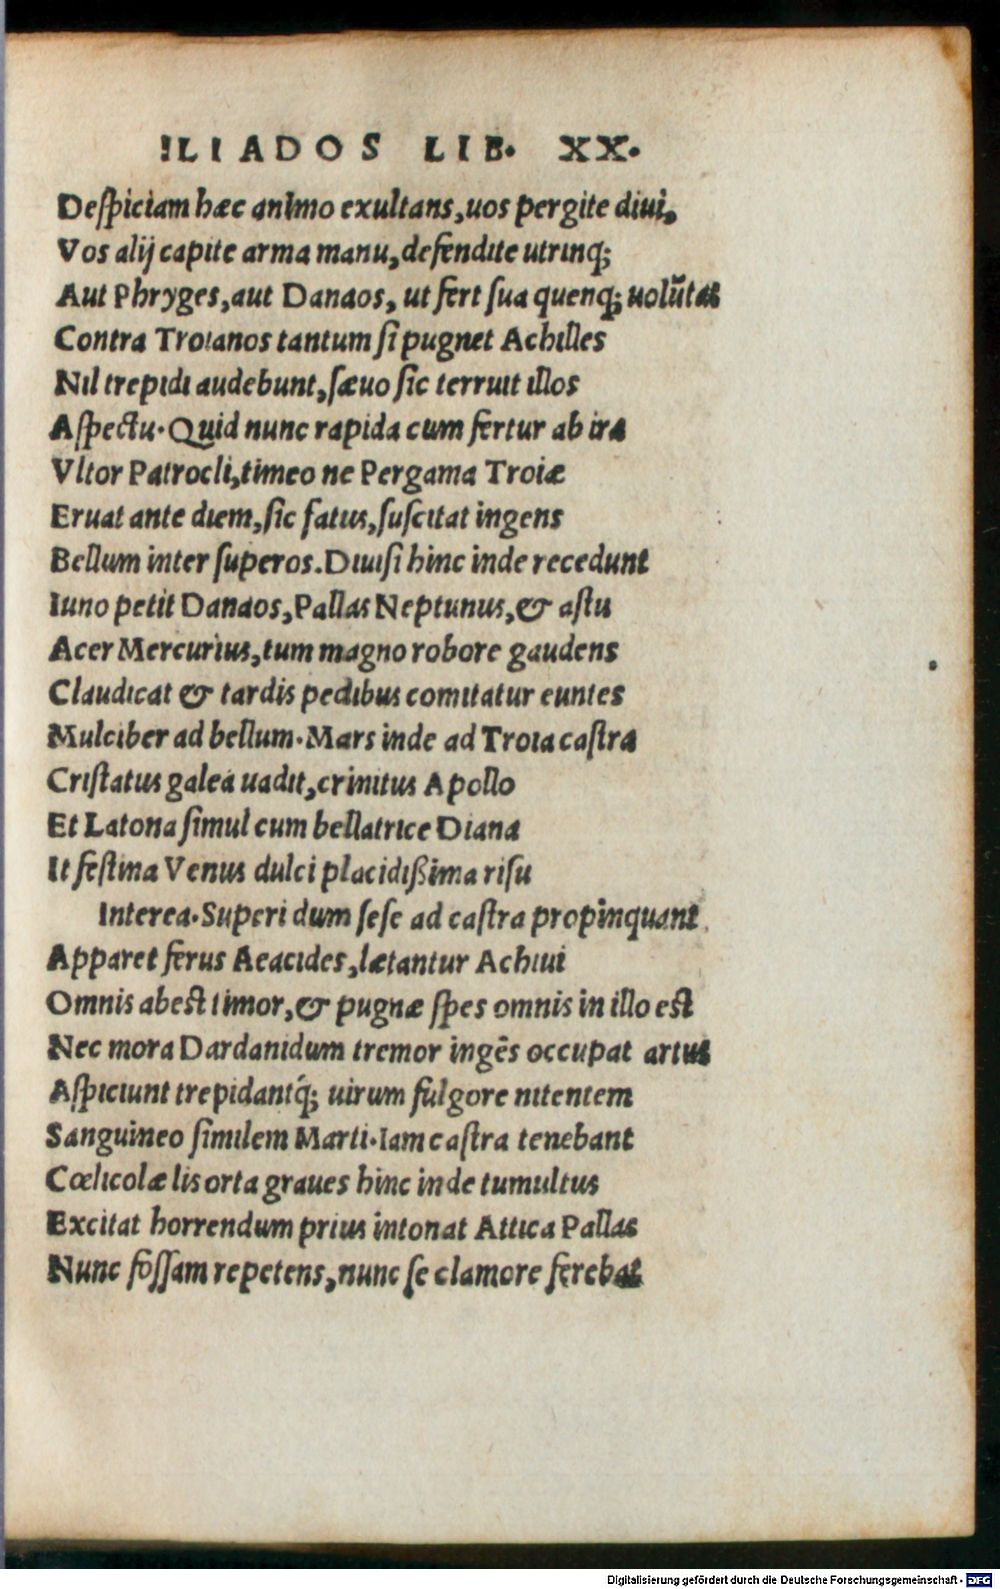 ILIADOS LIB. XX.
Despiciam hæc animo exultans, uos pergite diui,
Vos alij capite arma manu, defendite utrinq;
Aut Phryges, aut Danaos, ut fert sua quenq; uolũtas
Contra Troianos tantum si pugnet Achilles
Nil trepidi audebunt, sæuo sic terruit illos
Aspectu. Quid nunc rapida cum fertur ab ira
Vltor Patrocli, timeo ne Pergama Troiæ
Eruat ante diem, sic fatus, suscitat ingens
Bellum inter superos. Diuisi hinc inde recedunt
Iuno petit Danaos, Pallas Neptunus, & astu
Acer Mercurius, tum magno robore gaudens
Claudicat & tardis pedibus comitatur euntes
Mulciber ad bellum. Mars inde ad Troia castra
Cristatus galea uadit, crinitus Apollo
Et Latona simul cum bellatrice Diana
It festina Venus dulci placidißima risu
Interea. Superi dum sese ad castra propinquant.
Apparet ferus Aeacides, lætantur Achiui
Omnis abest timor, & pugnæ spes omnis in illo est
Nec mora Dardanidum tremor ingẽs occupat artus
Aspiciunt trepidantq́; uirum fulgore nitentem
Sanguineo similem Marti. Iam castra tenebant
Cœlicolæ lis orta graues hinc inde tumultus
Excitat horrendum prius intonat Attica Pallas
Nunc fossam repetens, nunc se clamore ferebat
Digitalisierung gefördert durch die Deutsche Forschungsgemeinschaft - DFG